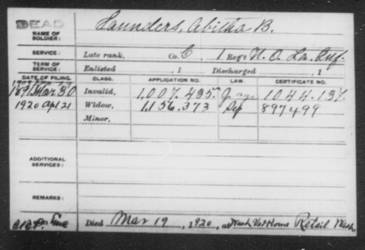 DEAD
NAME OF SOLDIER: Saunders, Abitha B.
SERVICE: Late rank, Co. C, 1 Reg't N. O. La. Inf.
TERM OF SERVICE: Enlisted 1 Discharged 1
DATE OF FILING. CLASS. APPLICATION NO. LAW. CERTIFICATE NO.
Mar 30 Invalid, 1,007,495 1044.137
1920 Apl 21 Widow, 1156.373 897499
Minor,
ADDITIONAL SERVICES:
REMARKS:
Died Mar 19, 1920, at Wash Vet Home Retsil Wash